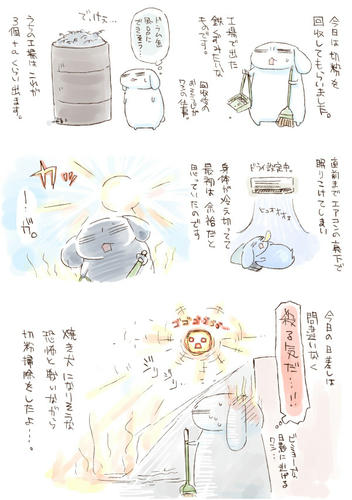 今日は切粉を
回収してもらいました。
工場で出た
鉄くずみたいな
ものです。
回収後の
おそうじが
ワシの仕事。
ドラム缶
でけぇ…
うちの工場は これが
3個+αくらい出ます。
直前までエアコンの真下で
照りこけてしまい
ドライ設定中。
ビュオオオオ
身体が冷え切ってて
最初は余裕だと
思っていたのです
カッ
！
が。
今日の日差しは
間違いなく
殺る気だ…!!
ゴゴゴゴゴ…
ジリ
ジリ
日陰に逃げる
焼き犬になりそうな
恐怖と戦いながら
切粉掃除をしたよ…。